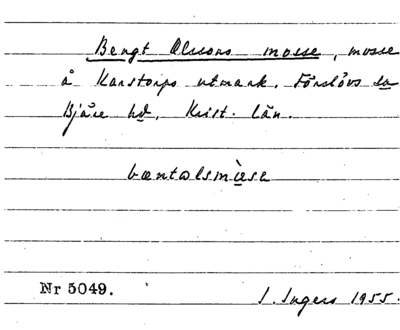 Bengt Olssons mosse, mosse
å Karstorps utmark. Förslövs sn
Bjäre hd. Krist. län.
bæntɷlsmùsɛ
Nr 5049.
I. Ingers 1955.